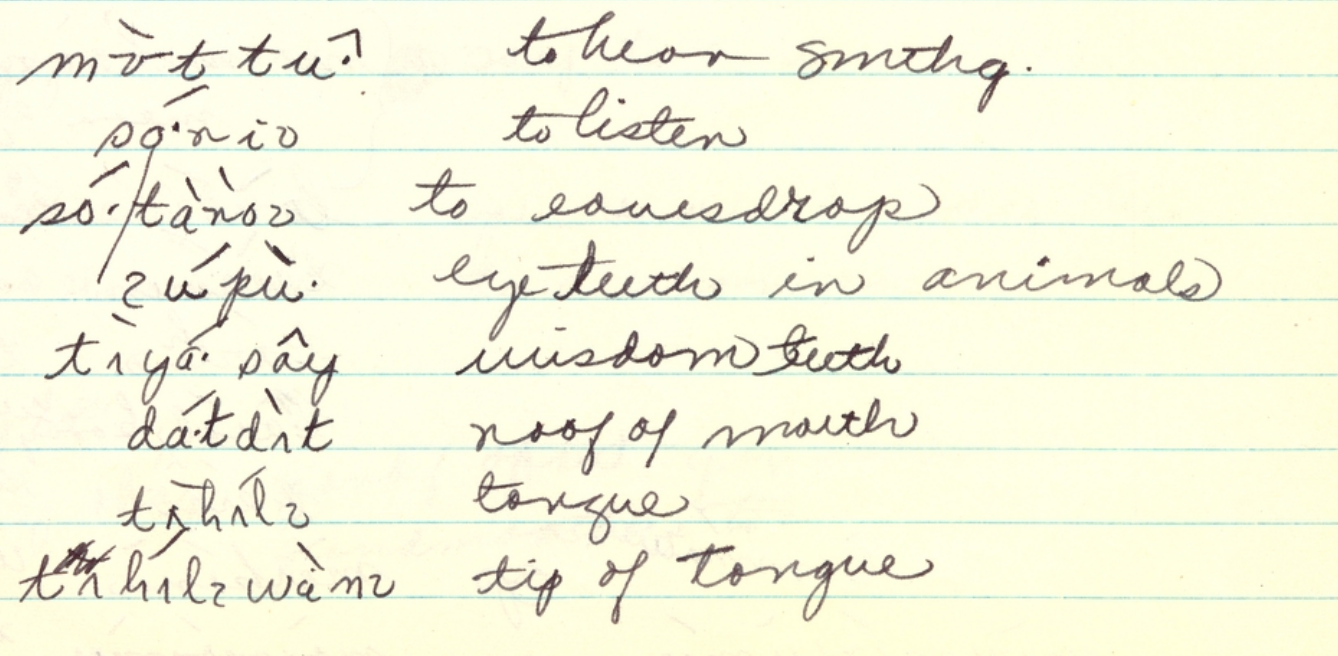 mɔ̀t tu·ˀ to hear smthg.
só·niʔ to listen
só·tànoʔ to eavesdrop
ʔúpù· eyeteeth in animals
tɩ̀yá· sây wisdom teeth
dá·tdɩ̀t roof of mouth
tɩ̀hɩ́lʔ tongue
tɩ̀hɩ́lʔwànʔ tip of tongue